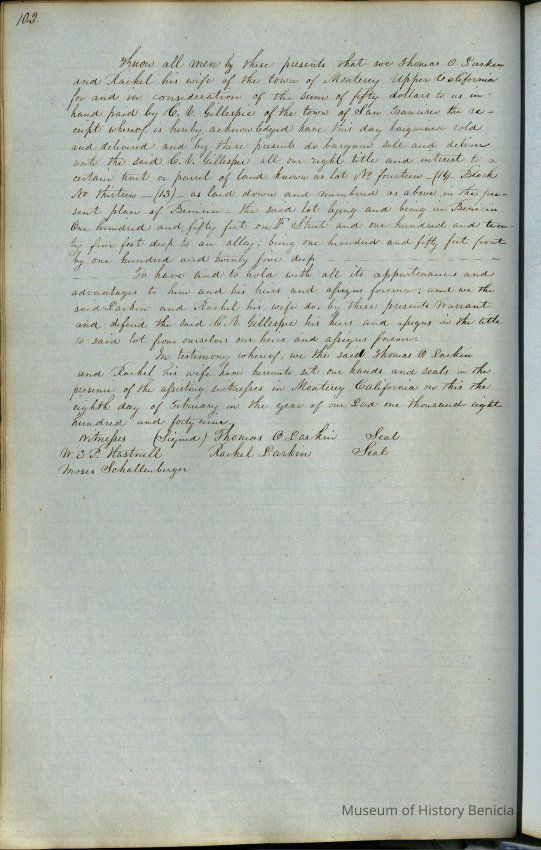 102.
Know all men by these presents that we Thomas O Larkin
and Rachel his wife of the town of Monterey Upper California
for and in consideration of the sum of fifty dollars to us in
hand paid by C. V. Gillespie of the town of San Francisco the re-
ceipt whereof is hereby acknowledged have this day bargained sold
and delivered and by these presents do bargain sell and deliver
unto the said C. V. Gillespie all our right title and interest to a
certain tract or parcel of land known as lot No fourteen -(14)- Block
No thirteen -(13)- as laid down and numbered as above in the pre-
sent plan of Benicia - the said lot lying and being in Benicia
One hundred and fifty feet on Street and one hundred and twen-
ty five feet deep to an alley; being one hundred and fifty feet front
by one hundred and twenty five deep
To have and to hold with all its appurtenances and
advantages to him and his heirs and assigns forever; and we the
said Larkin and Rachel his wife do, by these presents Warrant
and defend the said C. V. Gillespie his heirs and assigns in the title
to said lot from ourselves our heirs and assigns forever.
In testimony whereof, we the said Thomas O Larkin
and Rachel his wife have hereunto set our hands and seals in the
presence of the witnesses in Monterey California on this the
eighth day of February in the year of our Lord one thousand eight
hundred and forty nine
Witnesses (Signed) Thomas O Larkin Seal
W. E. P. Hartnell Rachel Larkin Seal
Moses Schallenberger
Museum of History Benicia